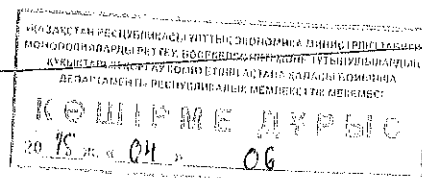 ҚАЗАҚСТАН РЕСПУБЛИКАСЫ ҰЛТТЫҚ ЭКОНОМИКА МИНИСТРЛІГІ ТАБИҒИ
МОНОПОЛИЯЛАРДЫ РЕТТЕУ, БӘСЕКЕЛЕСТІК ЖӘНЕ ТҰТЫНУШЫЛАРДЫҢ
ҚҰҚЫҚТАРЫН ҚОРҒАУ КОМИТЕТІНІҢ АСТАНА ҚАЛАСЫ БОЙЫНША
ДЕПАРТАМЕНТІ РЕСПУБЛИКАЛЫҚ МЕМЛЕКЕТТІК МЕКЕМЕСІ
КӨШІРМЕ ДҰРЫС
20 15 ж. « 04 » 06